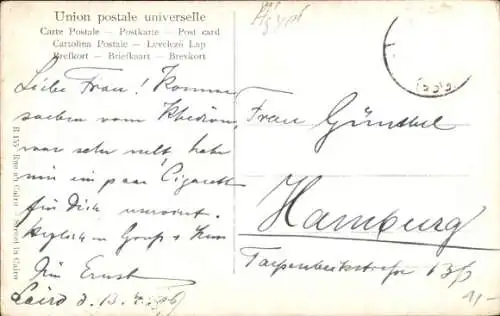 Union postale universelle
Carte Postale — Postkarte — Post card
Cartolina Postale — Levelező Lap
Brefkort — Briefkaart — Brevkort
Liebe Frau! Komme
soeben vom Khediven,
war sehr nett, habe
mir ein paar Cigarett
für Dich reserviert.
Herzlich Gruß + Kuss
Dein Ernst
Cairo d. 13. 4.
Frau Günthel
Hamburg
Tarpenbekstrasse